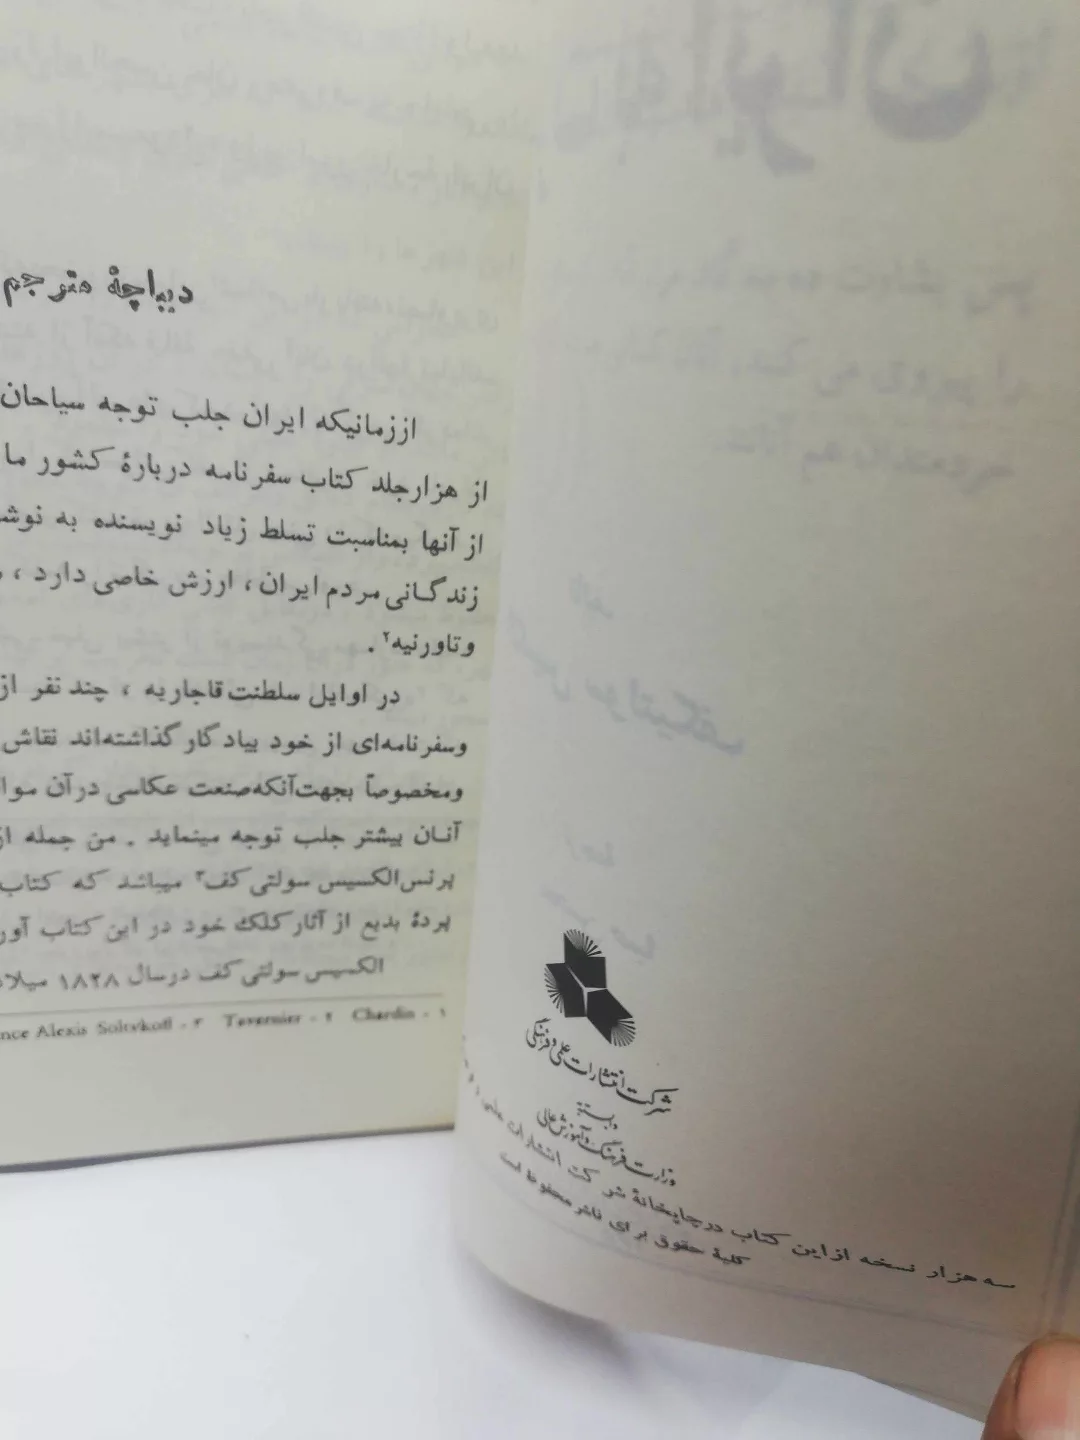 شرکت انتشارات علمی و فرهنگی
وابسته به
وزارت فرهنگ و آموزش عالی
سه هزار نسخه از این کتاب در چاپخانهٔ شرکت انتشارات علمی و
کلیهٔ حقوق برای ناشر محفوظ است
دیباچهٔ مترجم
اززمانیکه ایران جلب توجه سیاحان
از هزارجلد کتاب سفرنامه دربارهٔ کشور ما
از آنها بمناسبت تسلط زیاد نویسنده به
زندگانی مردم ایران، ارزش خاصی دارد ،
وتاورنیه۲ .
در اوایل سلطنت قاجاریه ، چند نفر از
وسفرنامه‌ای از خود بیادگار گذاشته‌اند نقاش
ومخصوصاً بجهت‌آنکه‌صنعت عکاسی درآن
آنان بیشتر جلب توجه مینماید . من جمله
پرنس‌الکسیس سولتی‌کف۳ میباشد که کتاب
پردهٔ بدیع از آثار کلك خود در این کتاب
الکسیس سولتی‌کف درسال ۱۸۲۸
۱ - Chardin ۲ - Tavernier ۳ - Alexis Soltykoff